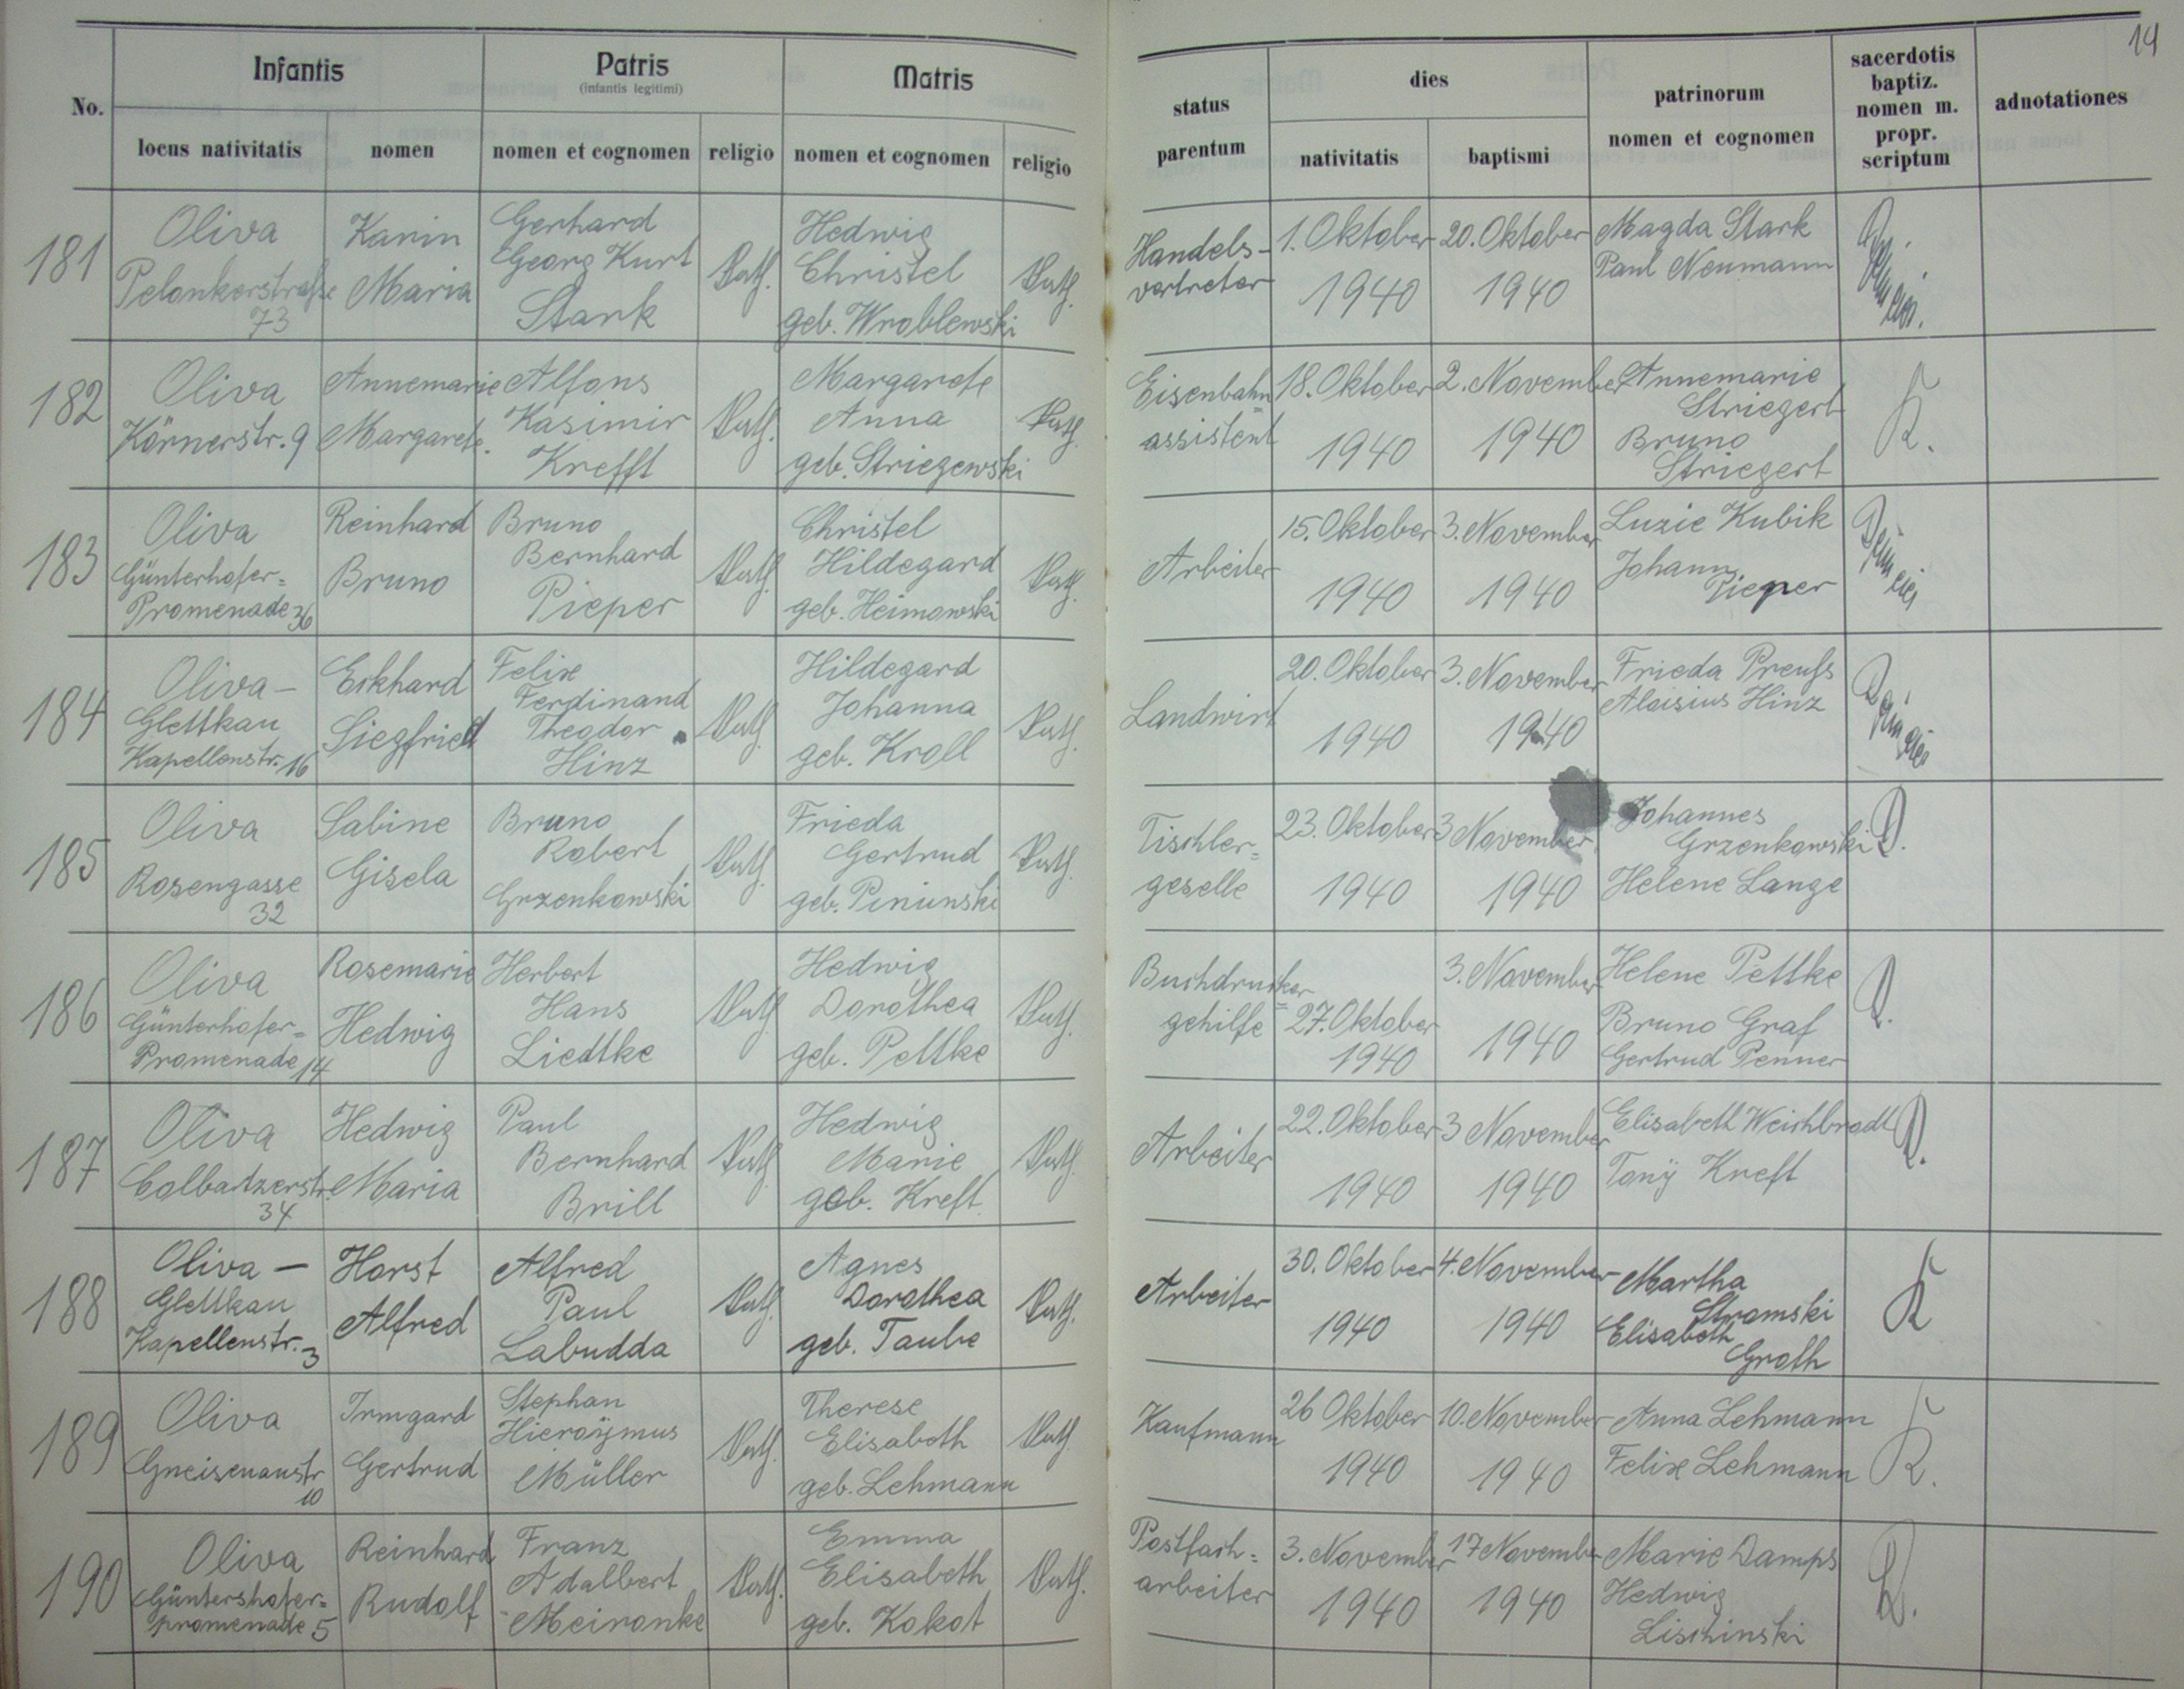 14
No.
Infantis
Patris
(infantis legitimi)
Matris
status parentum
dies
patrinorum nomen et cognomen
sacerdotis baptiz. nomen m. propr. scriptum
adnotationes
locus nativitatis
nomen
nomen et cognomen
religio
nomen et cognomen
religio
nativitatis
baptismi
181
Oliva
Pelonkerstraße
73
Karin
Maria
Gerhard
Georg Kurt
Stark
Kath.
Hedwig
Christel
geb. Wroblewski
Kath.
Handels-
vertreter
1. Oktober
1940
20. Oktober
1940
Magda Stark
Paul Neumann
182
Oliva
Körnerstr. 9
Annemarie
Margarete.
Alfons
Kasimir
Krefft
Kath.
Margarete
Anna
geb. Striezewski
Kath.
Eisenbahn=
assistent
18. Oktober
1940
2. November
1940
Annemarie
Striegert
Bruno
Striegert
K.
183
Oliva
Günterhofer=
Promenade 36
Reinhard
Bruno
Bruno
Bernhard
Pieper
Kath.
Christel
Hildegard
geb. Heimowski
Kath.
Arbeiter
15. Oktober
1940
3. November
1940
Luzie Kubik
Johann
Pieper
184
Oliva-
Glettkau
Kapellenstr. 16
Eckhard
Siegfried
Felix
Ferdinand
Theodor
Hinz
Kath.
Hildegard
Johanna
geb. Kroll
Kath.
Landwirt
20. Oktober
1940
3. November
1940
Frieda Preuß
Aloisius Hinz
185
Oliva
Rosengasse
32
Sabine
Gisela
Bruno
Robert
Grzenkowski
Kath.
Frieda
Gertrud
geb. Pininski
Kath.
Tischler=
geselle
23. Oktober
1940
3 November
1940
Johannes
Grzenkowski
Helene Lange
D.
186
Oliva
Günterhofer=
Promenade 14
Rosemarie
Hedwig
Herbert
Hans
Liedtke
Kath.
Hedwig
Dorothea
geb. Pettke
Kath.
Buchdrucker=
gehilfe
27. Oktober
1940
3. November
1940
Helene Pettke
Bruno Graf
Gertrud Penner
D.
187
Oliva
Colbatzerstr.
34
Hedwig
Maria
Paul
Bernhard
Brill
Kath.
Hedwig
Marie
geb. Kreft
Kath.
Arbeiter
22. Oktober
1940
3 November
1940
Elisabeth Weichbrodt
Tony Kreft
D.
188
Oliva-
Glettkau
Kapellenstr. 3
Horst
Alfred
Alfred
Paul
Labudda
Kath.
Agnes
Dorothea
geb. Taube
Kath.
Arbeiter
30. Oktober
1940
4. November
1940
Martha
Stromski
Elisabeth
Groth
K
189
Oliva
Gneisenaustr
10
Irmgard
Gertrud
Stephan
Hieroÿmus
Müller
Kath.
Therese
Elisabeth
geb. Lehmann
Kath.
Kaufmann
26 Oktober
1940
10. November
1940
Anna Lehmann
Felix Lehmann
K.
190
Oliva
Güntershofer=
promenade 5
Reinhard
Rudolf
Franz
Adalbert
Meironke
Kath.
Emma
Elisabeth
geb. Kokot
Kath.
Postfach=
arbeiter
3. November
1940
17 November
1940
Marie Damps
Hedwig
Lischinski